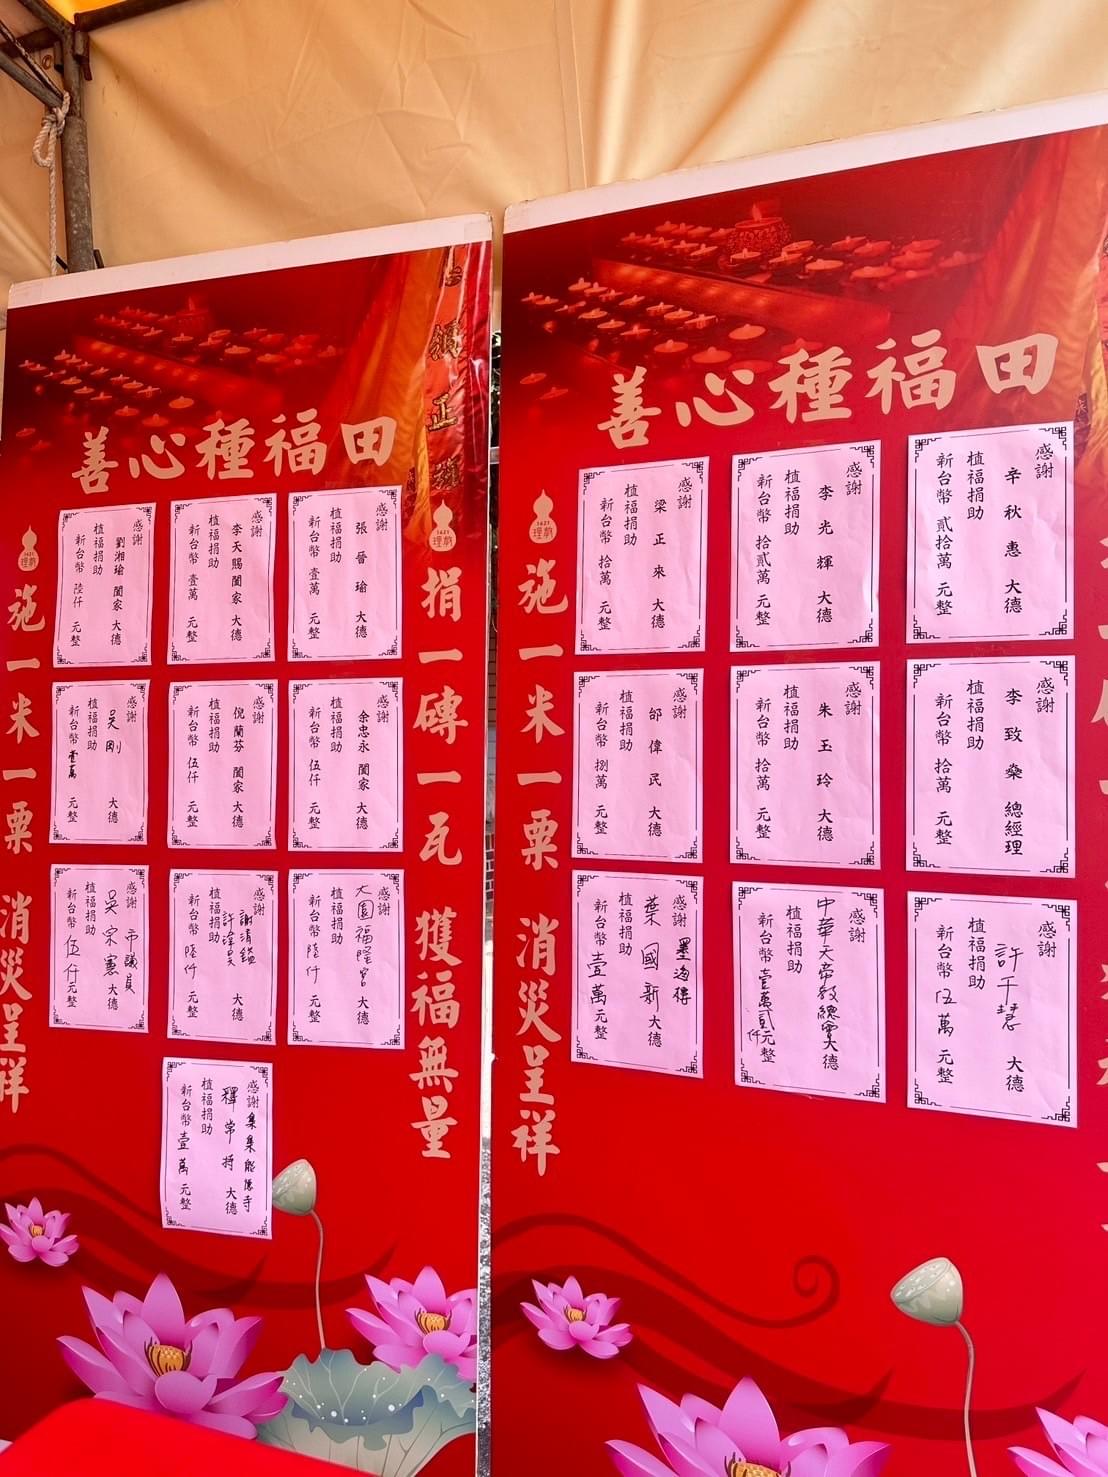 善心種福田
施一米一粟 消災呈祥
捐一磚一瓦 獲福無量
1621
理教
1621
理教
感謝
張晉瑜 大德
植福捐助
新台幣 壹萬 元整
感謝
李天賜 闔家 大德
植福捐助
新台幣 壹萬 元整
感謝
劉湘瑜 闔家 大德
植福捐助
新台幣 陸仟 元整
感謝
余忠永 闔家 大德
植福捐助
新台幣 伍仟 元整
感謝
倪蘭芬 闔家 大德
植福捐助
新台幣 伍仟 元整
感謝
吳剛 大德
植福捐助
新台幣 壹萬 元整
感謝
大園福隆宮 大德
植福捐助
新台幣 陸仟 元整
感謝
謝清鎰
大德
植福捐助
新台幣 陸仟 元整
感謝 市議員
吳宗憲 大德
植福捐助
新台幣 伍仟 元整
感謝 集集
寺
釋常持 大德
植福捐助
新台幣 壹萬 元整
善心種福田
施一米一粟 消災呈祥
1621
理教
感謝
辛秋惠 大德
植福捐助
新台幣 貳拾萬 元整
感謝
李光輝 大德
植福捐助
新台幣 拾貳萬 元整
感謝
梁正來 大德
植福捐助
新台幣 拾萬 元整
感謝
李致燊 總經理
植福捐助
新台幣 拾萬 元整
感謝
朱玉玲 大德
植福捐助
新台幣 拾萬 元整
感謝
邰偉民 大德
植福捐助
新台幣 捌萬 元整
感謝
許千慧 大德
植福捐助
新台幣 伍萬 元整
感謝
中華天帝教總會 大德
植福捐助
新台幣 壹萬貳仟 元整
感謝 墨海樓
葉國新 大德
植福捐助
新台幣 壹萬 元整